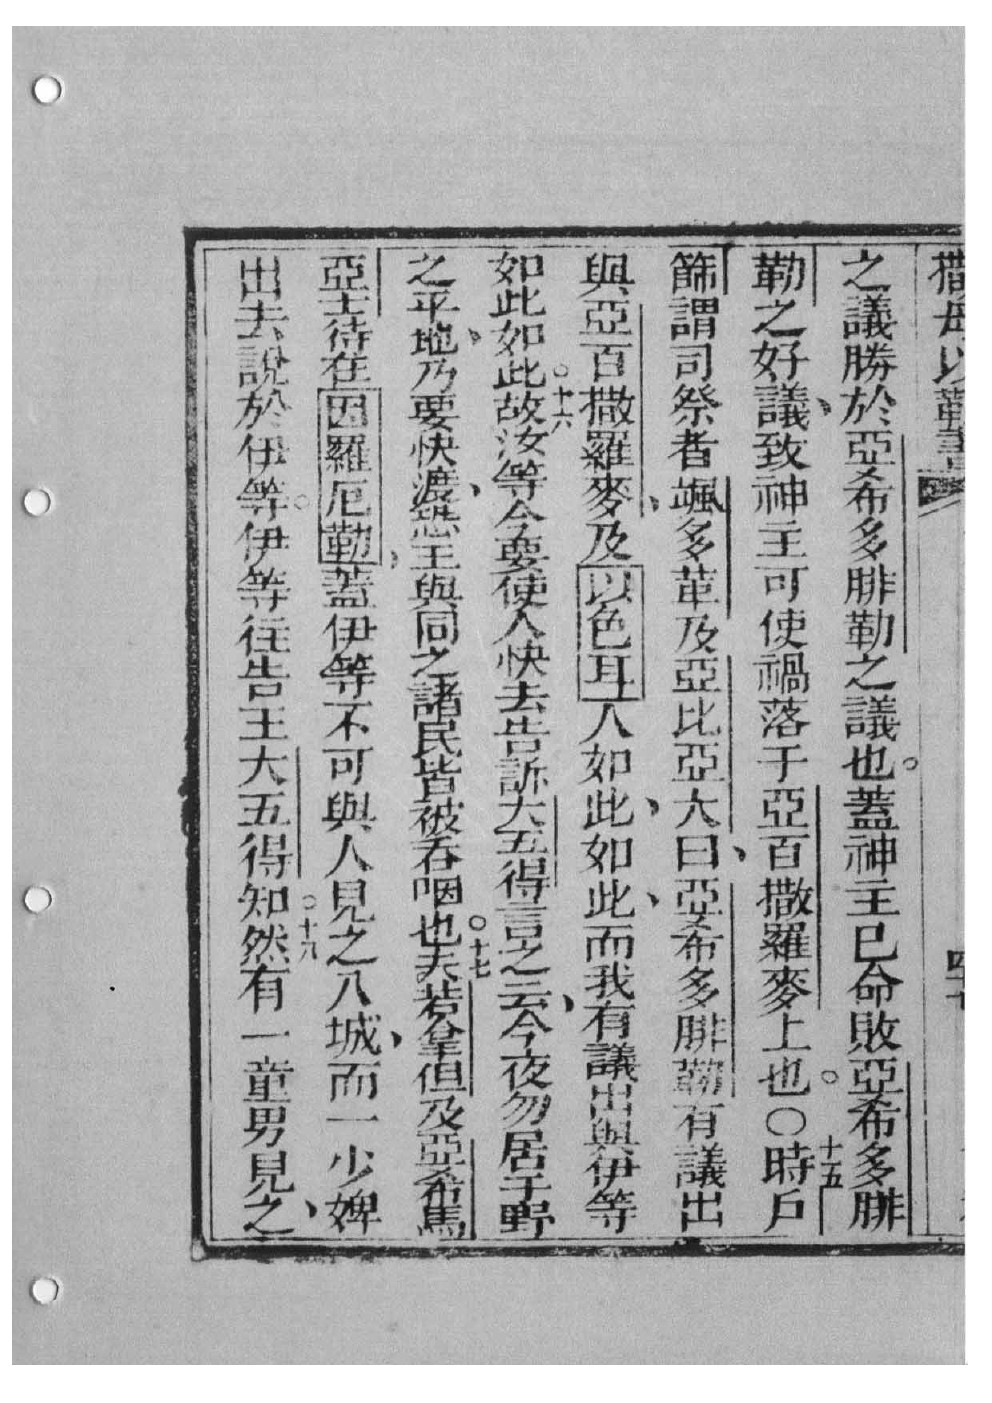 撒母以
之議勝於亞希多腓勒之議也。蓋神主已命敗亞希多腓
勒之好議、致神主可使禍落于亞百撒羅麥上也。○十五時戶
篩謂司祭者颯多革及亞比亞大曰、亞希多腓勒有議出
與亞百撒羅麥、及以色耳人如此、如此、而我有議出與伊等
如此如此。十六故汝等今要使人快去告訴大五得言之云、今夜勿居于野
之平地、乃要快渡、恐王與同之諸民皆被吞咽也。十七夫若拿但及亞希馬
亞士待在因羅厄勒、蓋伊等不可與人見之入城、而一少婢
出去說於伊等。伊等往告王大五得知。十八然有一童男見之、